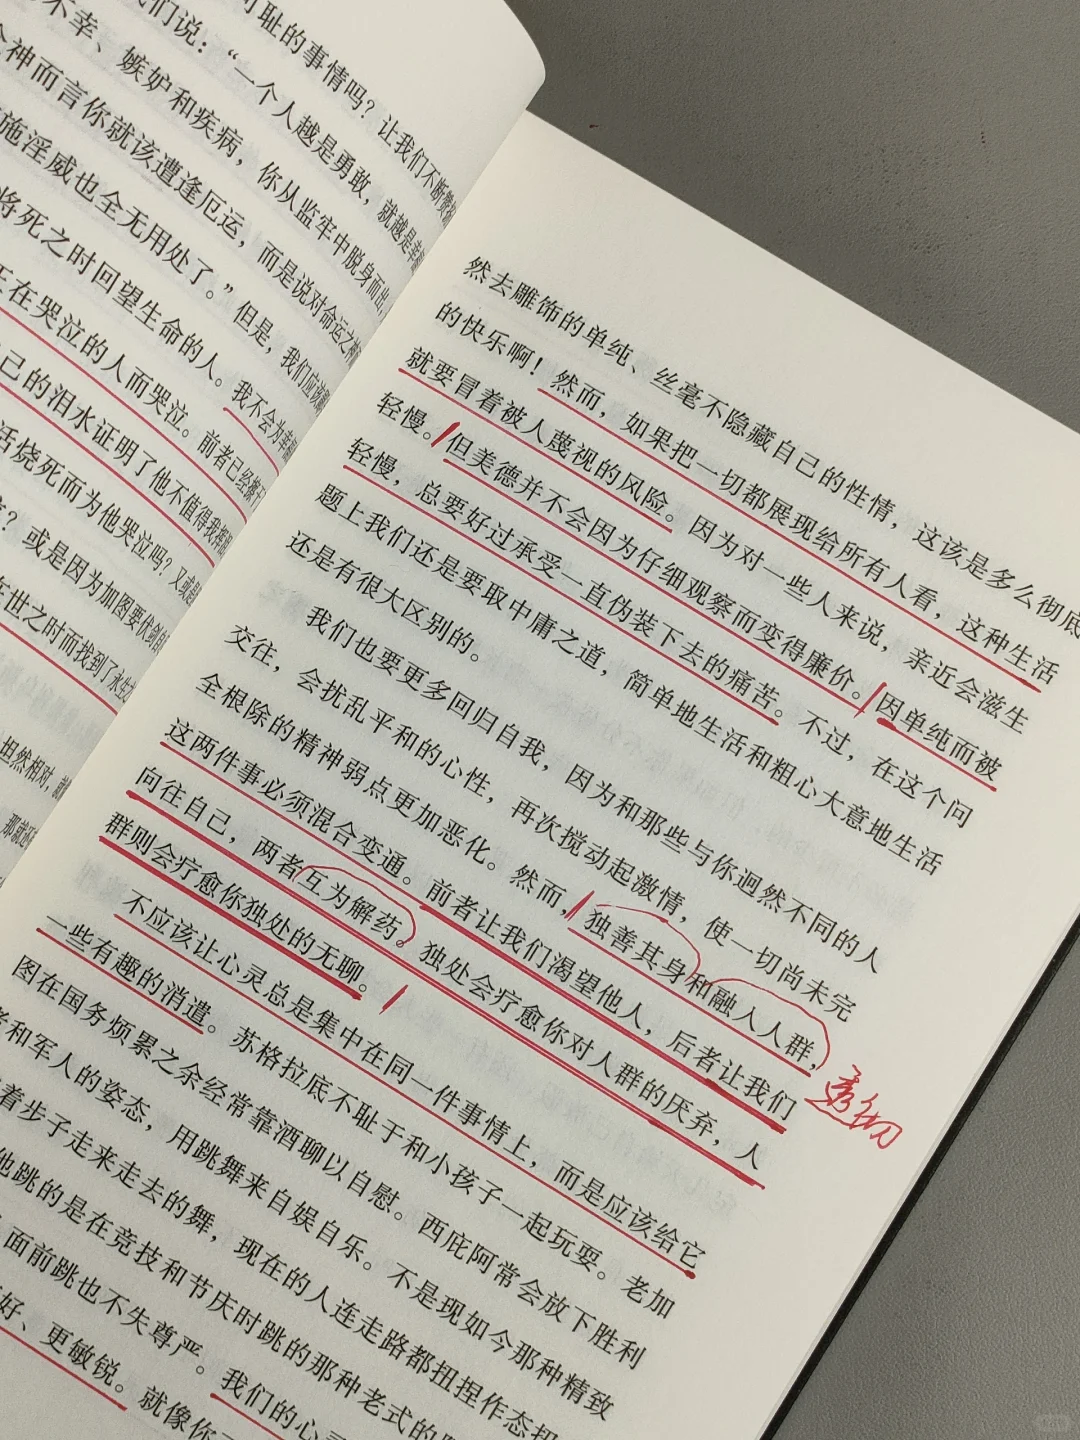 可耻的事情吗？让我们不断赞
们说：“一个人越是勇敢，就越是幸
不幸、嫉妒和疾病，你从监牢中脱身而出，
神而言你就该遭逢厄运，而是说对命运之神
施淫威也全无用处了。”但是，我们应该
将死之时回望生命的人。我不会为幸
正在哭泣的人而哭泣。前者已经擦干
己的泪水证明了他不值得我挥洒
活烧死而为他哭泣吗？又或是
？或是因为加图要伏剑自
在世之时而找到了永生之
坦然相对，就
那就还
然去雕饰的单纯、丝毫不隐藏自己的性情，这该是多么彻底
的快乐啊！然而，如果把一切都展现给所有人看，这种生活
就要冒着被人蔑视的风险。因为对一些人来说，亲近会滋生
轻慢。但美德并不会因为仔细观察而变得廉价。因单纯而被
轻慢，总要好过承受一直伪装下去的痛苦。不过，在这个问
题上我们还是要取中庸之道，简单地生活和粗心大意地生活
还是有很大区别的。
我们也要更多回归自我，因为和那些与你迥然不同的人
交往，会扰乱平和的心性，再次搅动起激情，使一切尚未完
全根除的精神弱点更加恶化。然而，独善其身和融入人群，
这两件事必须混合变通。前者让我们渴望他人，后者让我们
透彻
向往自己，两者互为解药。独处会疗愈你对人群的厌弃，人
群则会疗愈你独处的无聊。
不应该让心灵总是集中在同一件事情上，而是应该给它
一些有趣的消遣。苏格拉底不耻于和小孩子一起玩耍。老加
图在国务烦累之余经常靠酒聊以自慰。西庇阿常会放下胜利
者和军人的姿态，用跳舞来自娱自乐。不是现如今那种精致
着步子走来走去的舞，现在的人连走路都扭捏作态扭
他跳的是在竞技和节庆时跳的那种老式的
面前跳也不失尊严。我们的心
好、更敏锐。就像你